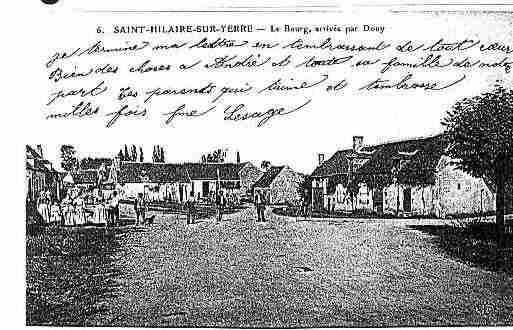 6. SAINT-HILAIRE-SUR-YERRE — Le Bourg, arrivée par Douy
je termine ma lettre en t'embrassant de tout cœur
Bien des choses a André et toute sa famille de notre
part Tes parents qui t'aime et t'embrasse
milles fois fme Lesage